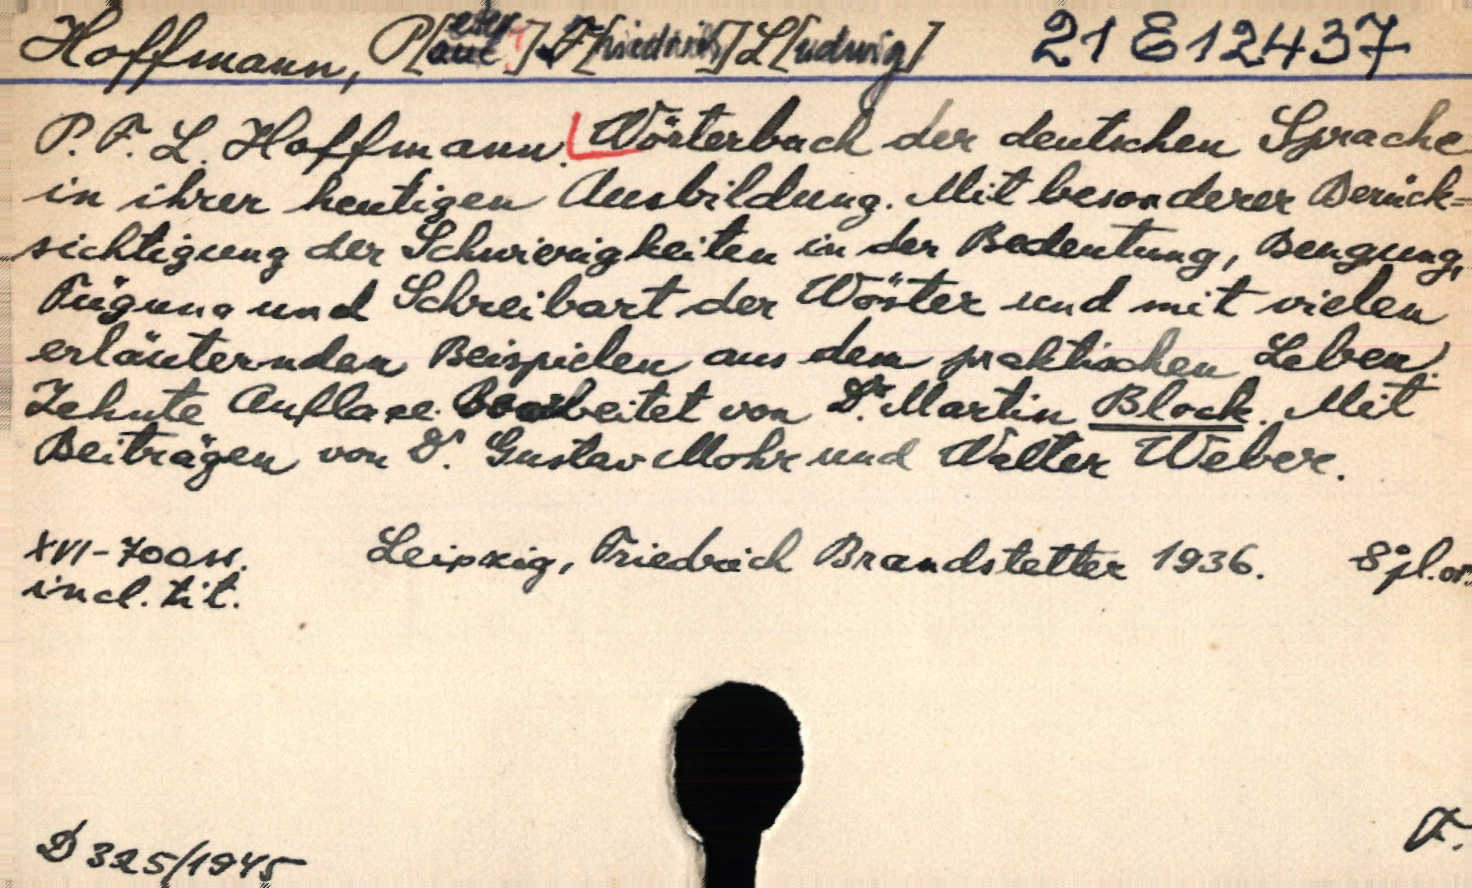 Hoffmann, P[eter] F[riedrich] L[udwig] 21 E 12437
P. F. L. Hoffmann. Wörterbuch der deutschen Sprache
in ihrer heutigen Ausbildung. Mit besonderer Berück=
sichtigung der Schwierigkeiten in der Bedeutung, Beugung,
Fügung und Schreibart der Wörter und mit vielen
erläuternden Beispielen aus dem praktischen Leben.
Zehnte Auflage. Bearbeitet von Dr. Martin Block. Mit
Beiträgen von Dr. Gustav Mohr und Walter Weber.
XVI-700 ss. Leipzig, Friedrich Brandstetter 1936. 8° pl. or.
incl. tit.
D 325/1945 F.